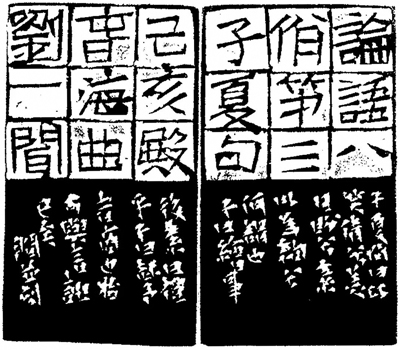 論語八
佾第三
子夏句
子夏問曰巧
笑倩兮美
目盼兮素
以為絢兮
何謂也
子曰繪事
己亥殿
春海曲
劉一聞
後素曰禮
後乎子曰起予
者商也始
可與言詩
已矣